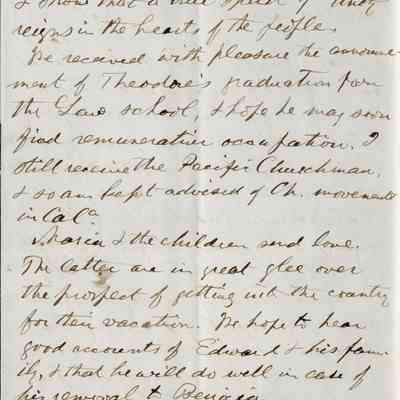 & show that a true spirit of unity
reigns in the hearts of the people.
We received with pleasure the announce-
ment of Theodore's graduation from
the Law school, & hope he may soon
find remunerative occupation. I
still receive the Pacific Churchman,
& so am kept advised of Ch. movements
in Cala.
Maria & the children send love.
The latter are in great glee over
the prospect of getting into the country
for their vacation. We hope to hear
good accounts of Edward & his fam-
ily, & that he will do well in case of
his removal to Benicia